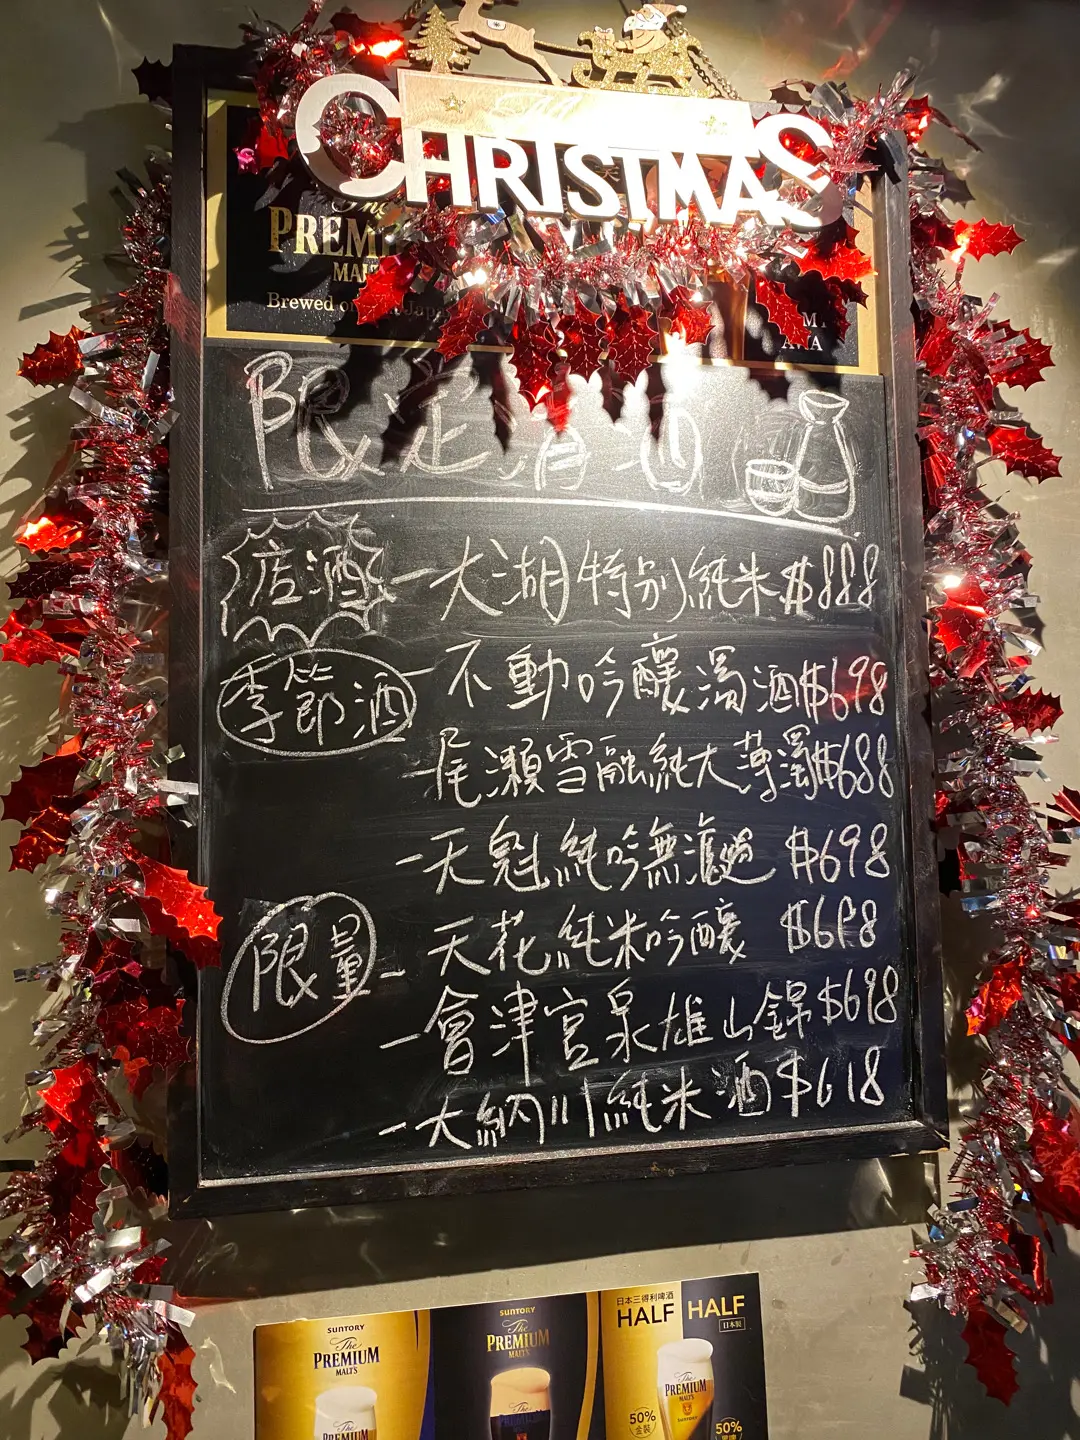 CHRISTMAS
The
PREMI
MAL
Brewed
限定清酒
店酒 - 大湖特別純米 $888
季節酒 - 不動吟釀濁酒 $698
- 尾瀨雪融純大薄濁 $688
- 天魁純吟無濾過 $698
限量 - 天花純米吟釀 $698
- 會津宮泉雄山錦 $698
- 大納川純米酒 $618
SUNTORY
The
PREMIUM
MALT'S
The
PREMIUM
SUNTORY
The
PREMIUM
MALT'S
The
PREMIUM
日本三得利啤酒
HALF HALF
日本製
The
PREMIUM
MALT'S
50%
金裝
50%